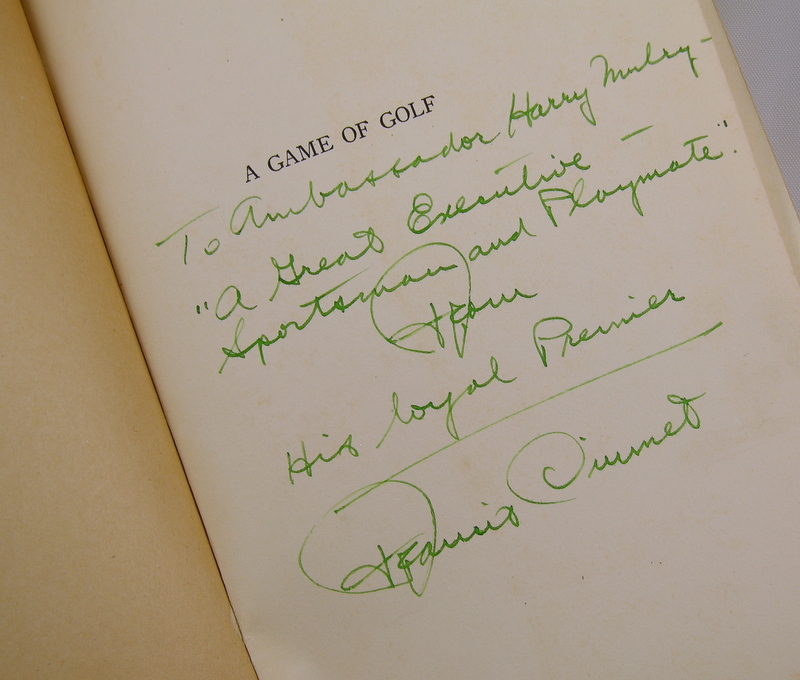 A GAME OF GOLF
To Ambassador Harry Mulry-
"A Great Executive -
Sportsman and Playmate".
From
His loyal Premier
Francis Ouimet